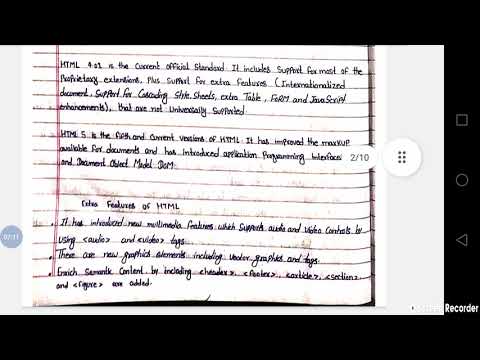 HTML 4.01 is the current official standard. It includes support for most of the
Proprietary extensions, Plus support for extra features (Internationalized
document, Support for Cascading Style Sheets, extra Table, FoRM and JavaScript
enhancements), that are not Universally Supported.
HTML 5 is the fifth and current versions of HTML. It has improved the maxKUP
available for documents and has introduced application Programming Interfaces
and Document Object Model DOM.
2/10
Extra Features of HTML
07:11
It has introduced new multimedia features which supports audio and video controls by
using <audio> and <video> tags.
There are new graphics elements including vector graphics and tags.
Enrich Semantic Content by including <header>, <footer>, <article>, <section>
and <figure> are added.
Recorder